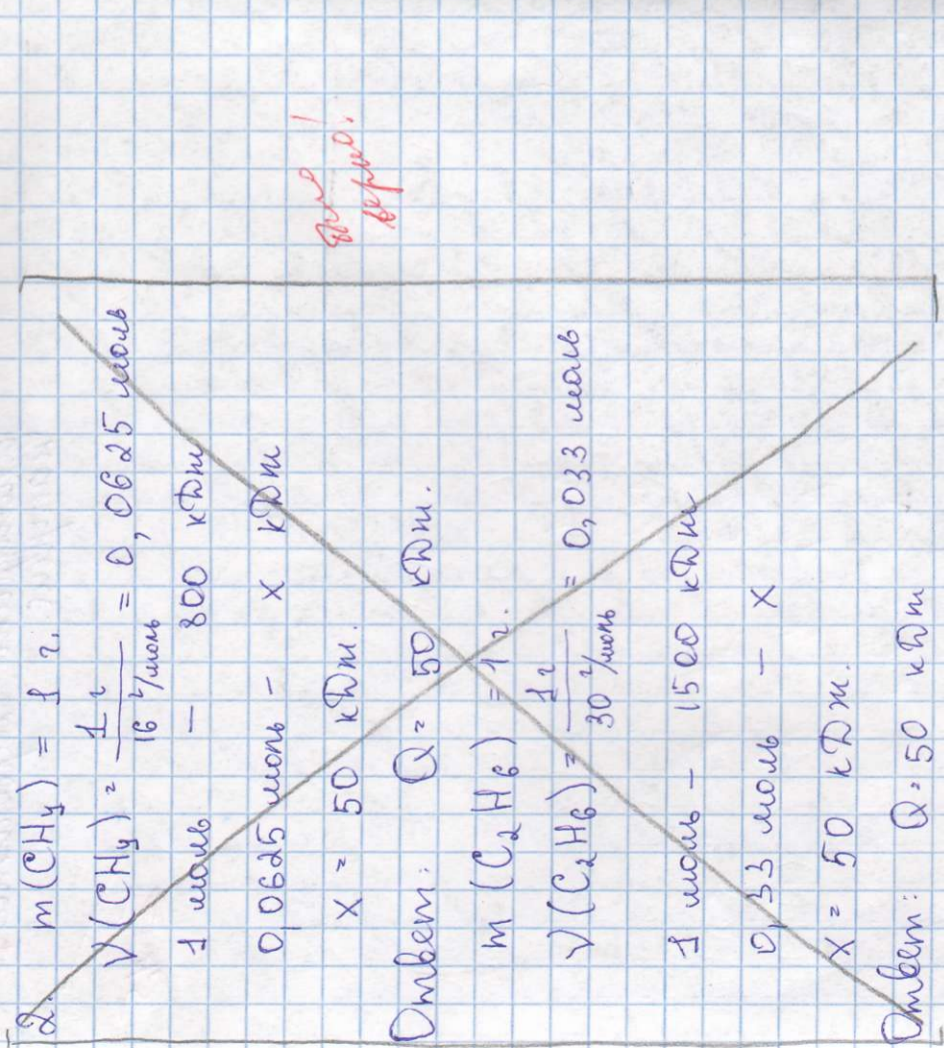 2. m(CH₄) = 1 г.
ν(CH₄) = 1 г / 16 г/моль = 0,0625 моль
1 моль — 800 кДж
0,0625 моль - x кДж
x = 50 кДж.
Ответ: Q = 50 кДж.
m(C₂H₆) = 1 г.
ν(C₂H₆) = 1 г / 30 г/моль = 0,033 моль
1 моль - 1500 кДж
0,33 моль - x
x = 50 кДж.
Ответ: Q = 50 кДж
было
верно!